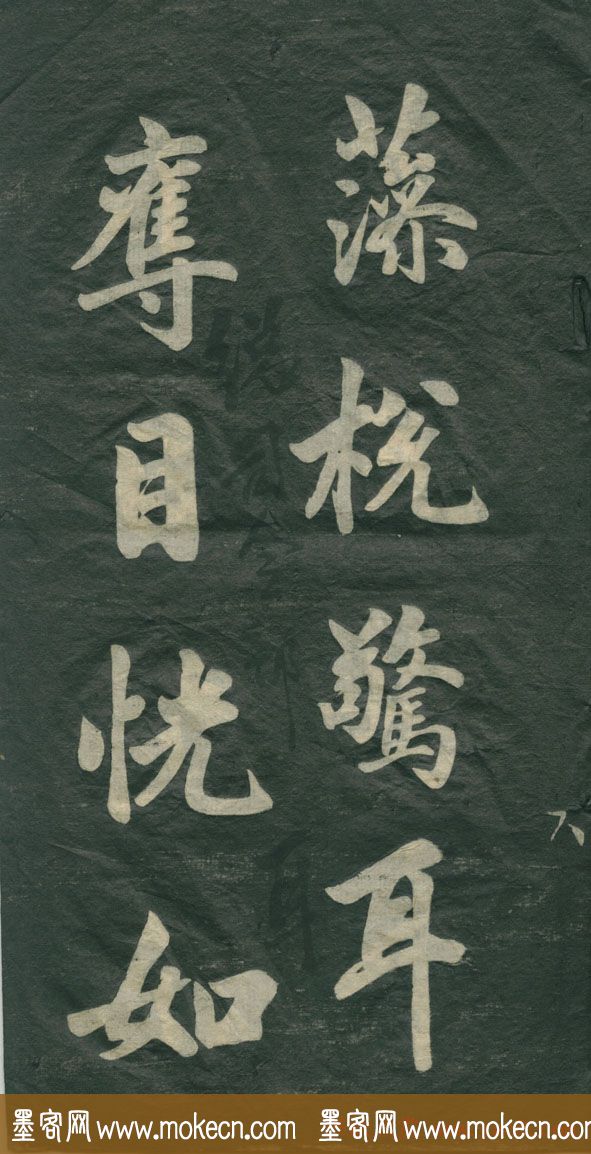 藻梲驚耳
奪目恍如
墨客网 www.mokecn.com 墨客网 www.mokecn.com